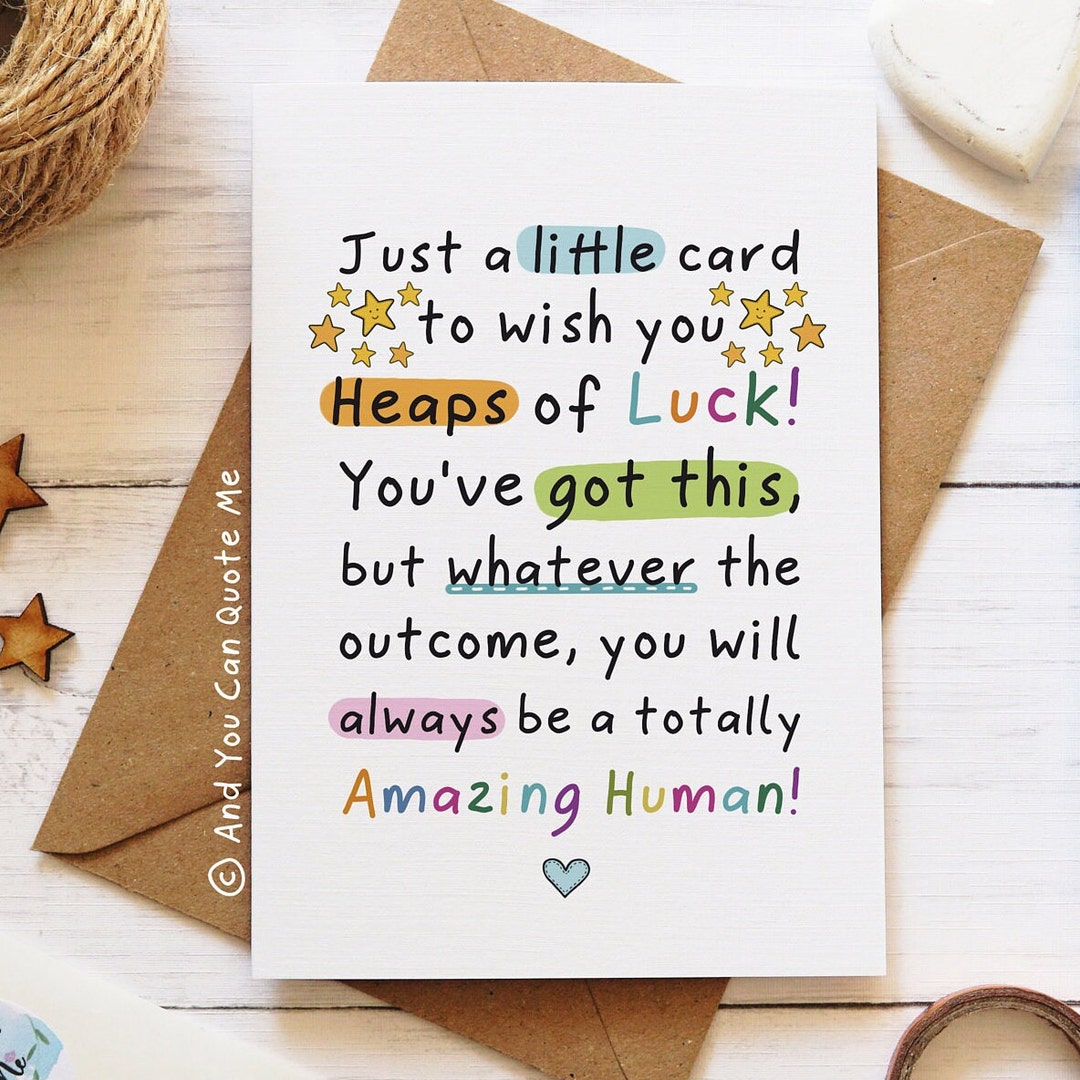 Just a little card
to wish you
Heaps of Luck!
You've got this,
but whatever the
outcome, you will
always be a totally
Amazing Human!
© And You Can Quote Me
Me